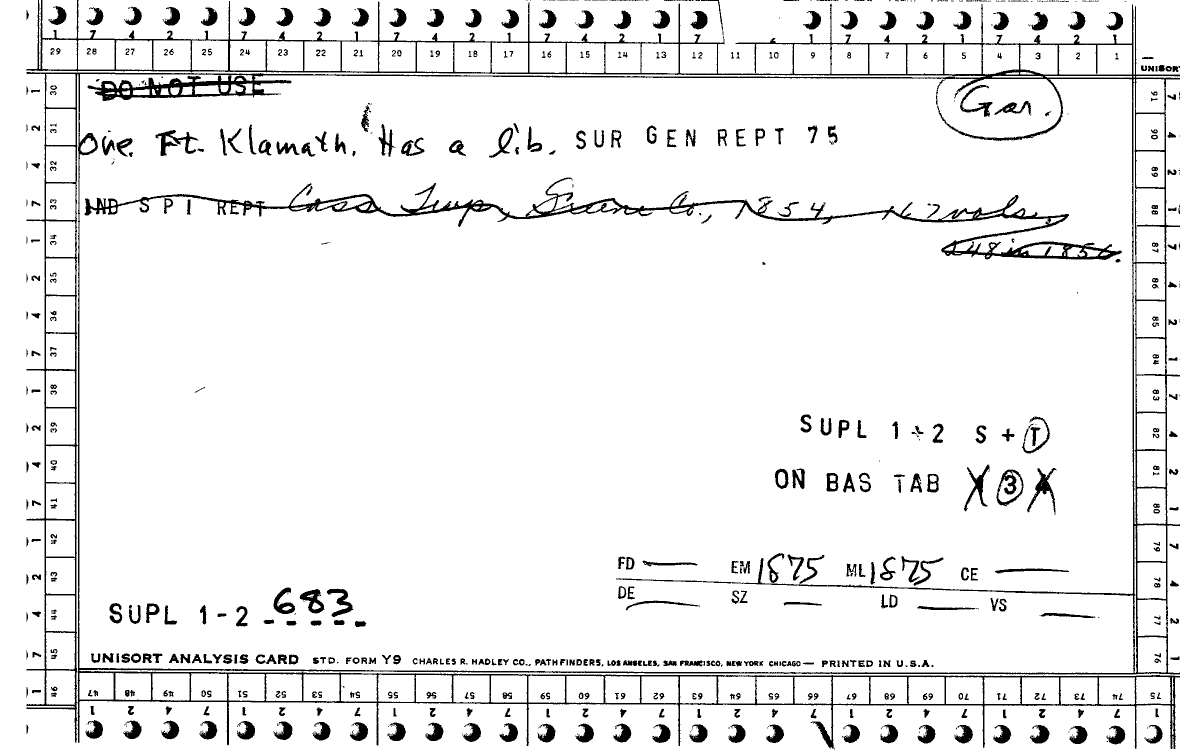 1 7 4 2 1 7 4 2 1 7 4 2 1 7 4 2 1 7 7 4 2 1 7 4 2 1
29 28 27 26 25 24 23 22 21 20 19 18 17 16 15 14 13 12 11 10 9 8 7 6 5 4 3 2 1
UNISORT
DO NOT USE
Gar.
One. Ft. Klamath. Has a lib. SUR GEN REPT 75
IND S P I REPT Cass Twp, Greene Co., 1854, 167 vols.
248 in 1856.
SUPL 1+2 S + T
ON BAS TAB 3
FD — EM 1875 ML 1875 CE —
DE — SZ — LD — VS —
SUPL 1-2 683
UNISORT ANALYSIS CARD STD. FORM Y9 CHARLES R. HADLEY CO., PATHFINDERS, LOS ANGELES, SAN FRANCISCO, NEW YORK CHICAGO — PRINTED IN U.S.A.
46 47 48 49 50 51 52 53 54 55 56 57 58 59 60 61 62 63 64 65 66 67 68 69 70 71 72 73 74 75
1 2 4 7 1 2 4 7 1 2 4 7 1 2 4 7 1 2 4 7 1 2 4 7 1 2 4 7 1